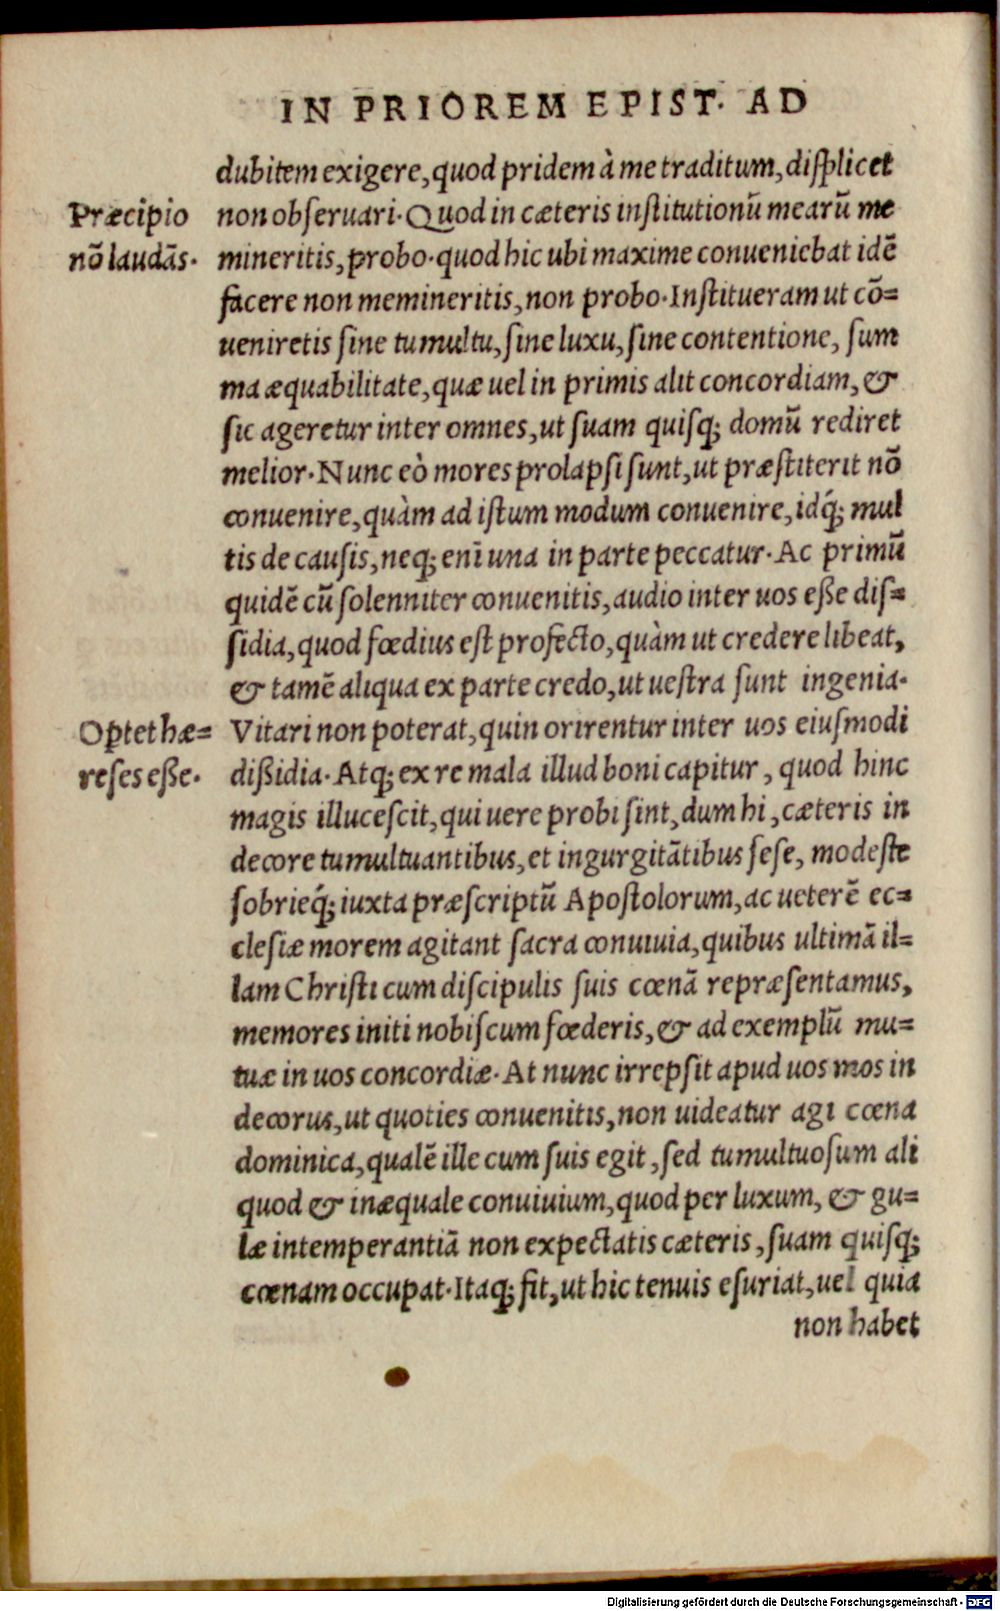 IN PRIOREM EPIST. AD
dubitem exigere, quod pridem à me traditum, diſplicet
Præcipio
nõ laudãs.
non obſeruari. Quod in cæteris inſtitutionũ mearũ me
mineritis, probo. quod hic ubi maxime conueniebat idẽ
facere non memineritis, non probo. Inſtitueram ut cõ=
ueniretis ſine tumultu, ſine luxu, ſine contentione, ſum
ma æquabilitate, quæ uel in primis alit concordiam, &
ſic ageretur inter omnes, ut ſuam quiſq; domũ rediret
melior. Nunc eò mores prolapſi ſunt, ut præſtiterit nõ
conuenire, quàm ad iſtum modum conuenire, idq́; mul
tis de cauſis, neq; enĩ una in parte peccatur. Ac primũ
quidẽ cũ ſolenniter conuenitis, audio inter uos eſſe diſ=
ſidia, quod fœdius eſt profecto, quàm ut credere libeat,
& tamẽ aliqua ex parte credo, ut ueſtra ſunt ingenia.
Optet hæ=
reſes eſſe.
Vitari non poterat, quin orirentur inter uos eiuſmodi
diſſidia. Atq; ex re mala illud boni capitur, quod hinc
magis illuceſcit, qui uere probi ſint, dum hi, cæteris in
decore tumultuantibus, et ingurgitãtibus ſeſe, modeſte
ſobrieq́; iuxta præſcriptũ Apoſtolorum, ac ueterẽ ec=
cleſiæ morem agitant ſacra conuiuia, quibus ultimã il=
lam Chriſti cum diſcipulis ſuis cœnã repræſentamus,
memores initi nobiſcum fœderis, & ad exemplũ mu=
tuæ in uos concordiæ. At nunc irrepſit apud uos mos in
decorus, ut quoties conuenitis, non uideatur agi cœna
dominica, qualẽ ille cum ſuis egit, ſed tumultuoſum ali
quod & inæquale conuiuium, quod per luxum, & gu=
læ intemperantiã non expectatis cæteris, ſuam quiſq;
cœnam occupat. Itaq; fit, ut hic tenuis eſuriat, uel quia
non habet
Digitalisierung gefördert durch die Deutsche Forschungsgemeinschaft - DFG